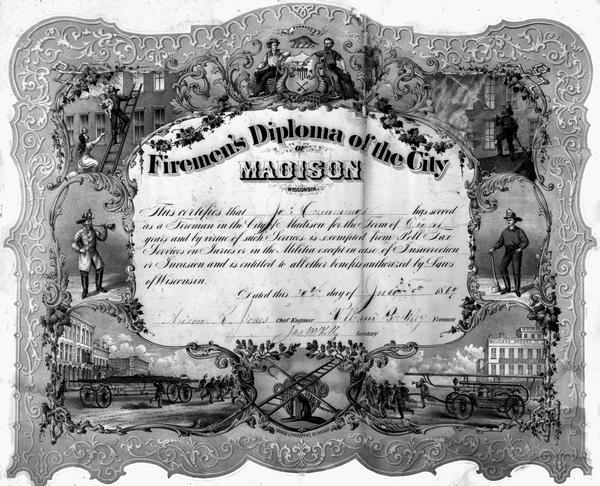 Firemen's Diploma of the City
OF
MADISON
WISCONSIN.
This certifies that has served
as a Fireman in the City of Madison for the term of
years and by virtue of such Services is exempted from Poll Tax
Services on Juries or in the Militia except in case of Insurrection
or Invasion and is entitled to all other benefits authorized by Laws
of Wisconsin.
Dated this day of 186
Jones Chief Engineer Foreman
Secretary